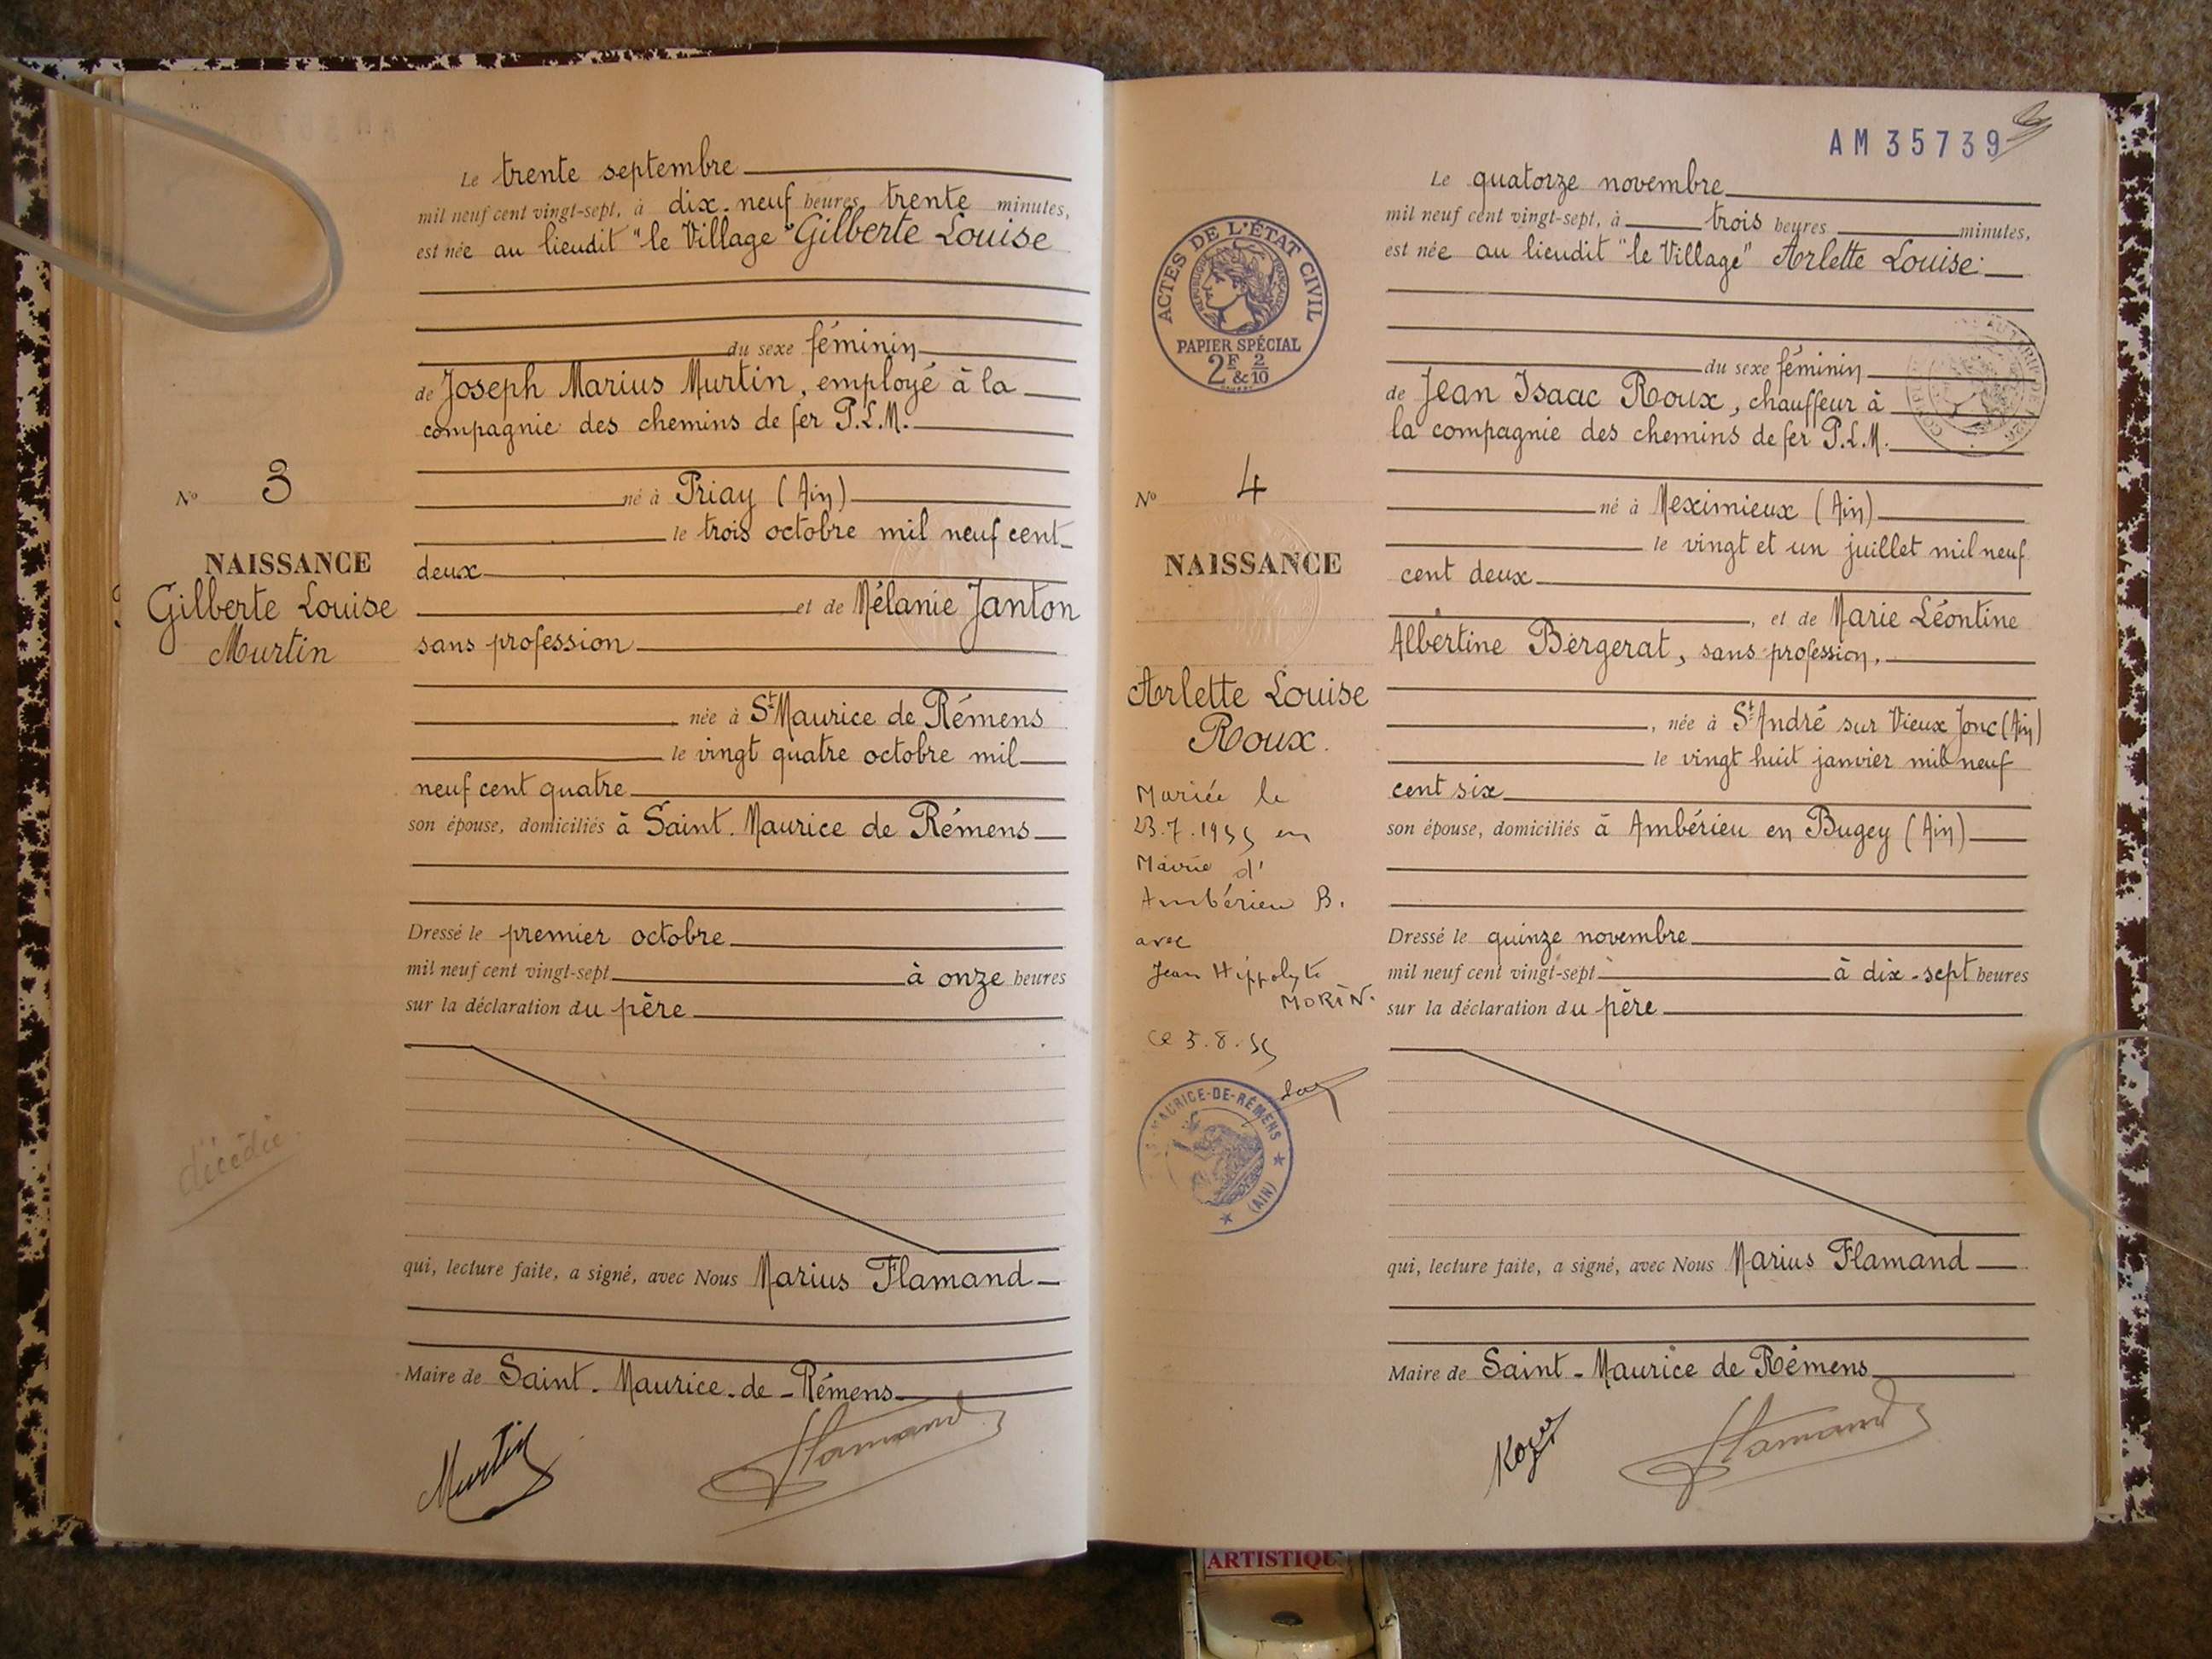 Le trente septembre
mil neuf cent vingt-sept, à dix-neuf heures trente minutes,
est née au lieudit "le Village" Gilberte Louise
du sexe féminin
de Joseph Marius Murtin, employé à la
compagnie des chemins de fer P.L.M.
né à Priay (Ain)
le trois octobre mil neuf cent
deux
et de Mélanie Janton
sans profession
née à St Maurice de Rémens
le vingt quatre octobre mil
neuf cent quatre
son épouse, domiciliés à Saint-Maurice de Rémens
Dressé le premier octobre
mil neuf cent vingt-sept à onze heures
sur la déclaration du père
qui, lecture faite, a signé, avec Nous Marius Flamand
Maire de Saint-Maurice-de-Rémens
Murtin
Flamand
No 3
NAISSANCE
Gilberte Louise
Murtin
décédée
AM 35739
Le quatorze novembre
mil neuf cent vingt-sept, à trois heures minutes,
est née au lieudit "le Village" Arlette Louise
du sexe féminin
de Jean Isaac Roux, chauffeur à
la compagnie des chemins de fer P.L.M.
né à Meximieux (Ain)
le vingt et un juillet mil neuf
cent deux
, et de Marie Léontine
Albertine Bergerat, sans profession,
, née à St André sur Vieux Jonc (Ain)
le vingt huit janvier mil neuf
cent six
son épouse, domiciliés à Ambérieu en Bugey (Ain)
Dressé le quinze novembre
mil neuf cent vingt-sept à dix-sept heures
sur la déclaration du père
qui, lecture faite, a signé, avec Nous Marius Flamand
Maire de Saint-Maurice de Rémens
Flamand
ACTES DE L'ÉTAT CIVIL
RÉPUBLIQUE FRANÇAISE
PAPIER SPÉCIAL
2F & 2/10
No 4
NAISSANCE
Arlette Louise
Roux
Mariée le
23.7.1955 en
Mairie d'
Ambérieu B.
avec
Jean Hippolyte
MORIN.
Ce 5.8.55
MAURICE-DE-RÉMENS
(AIN)
ARTISTIQU